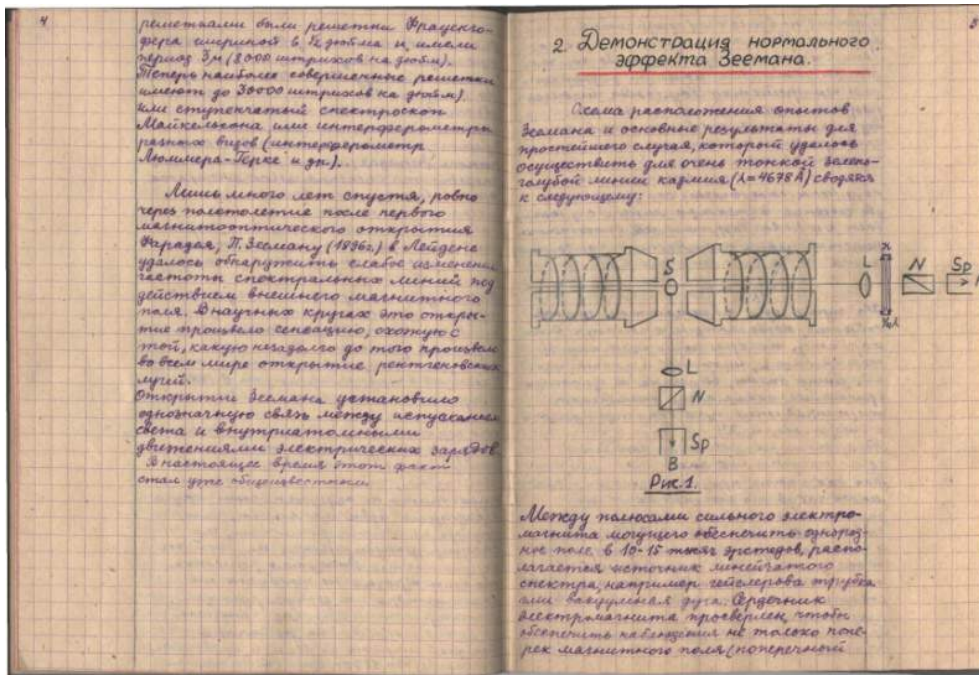 4
решетками были решетки Фраунго-
фера шириной в
период 3м (8000 штрихов на дюйм).
Теперь наиболее совершенные решетки
имеют до 30000 штрихов на дюйм).
или ступенчатый спектроскоп
Майкельсона или интерферометры
разных видов (интерферометр
Люммера-Герке и др.).
Лишь много лет спустя, ровно
через полстолетие после первого
магнитооптического открытия
Фарадея, П. Зееману (1896г.) в Лейдене
удалось обнаружить слабое изменение
частоты спектральных линий под
действием внешнего магнитного
поля. В научных кругах это откры-
тие произвело сенсацию, схожую с
той, какую незадолго до того произвело
во всем мире открытие рентгеновских
лучей.
Открытие Зеемана установило
однозначную связь между испусканием
света и внутриатомными
движениями электрических зарядов.
В настоящее время этот факт
стал уже общеизвестным
2. Демонстрация нормального
эффекта Зеемана.
Схема расположения опытов
Зеемана и основные результаты для
простейшего случая, который удалось
осуществить для очень тонкой зелено-
голубой линии кадмия (λ=4678Å) сводятся
к следующему:
S
L
N
Sp
L
N
Sp
B
Рис.1.
Между полюсами сильного электро-
магнита могущего обеспечить однород-
ное поле в 10-15 тысяч эрстедов, распо-
лагается источник линейчатого
спектра, например гейслерова трубка
или вакуумная дуга. Сердечник
электромагнита просверлен, чтобы
обеспечить наблюдения не только попе-
рек магнитного поля (поперечный